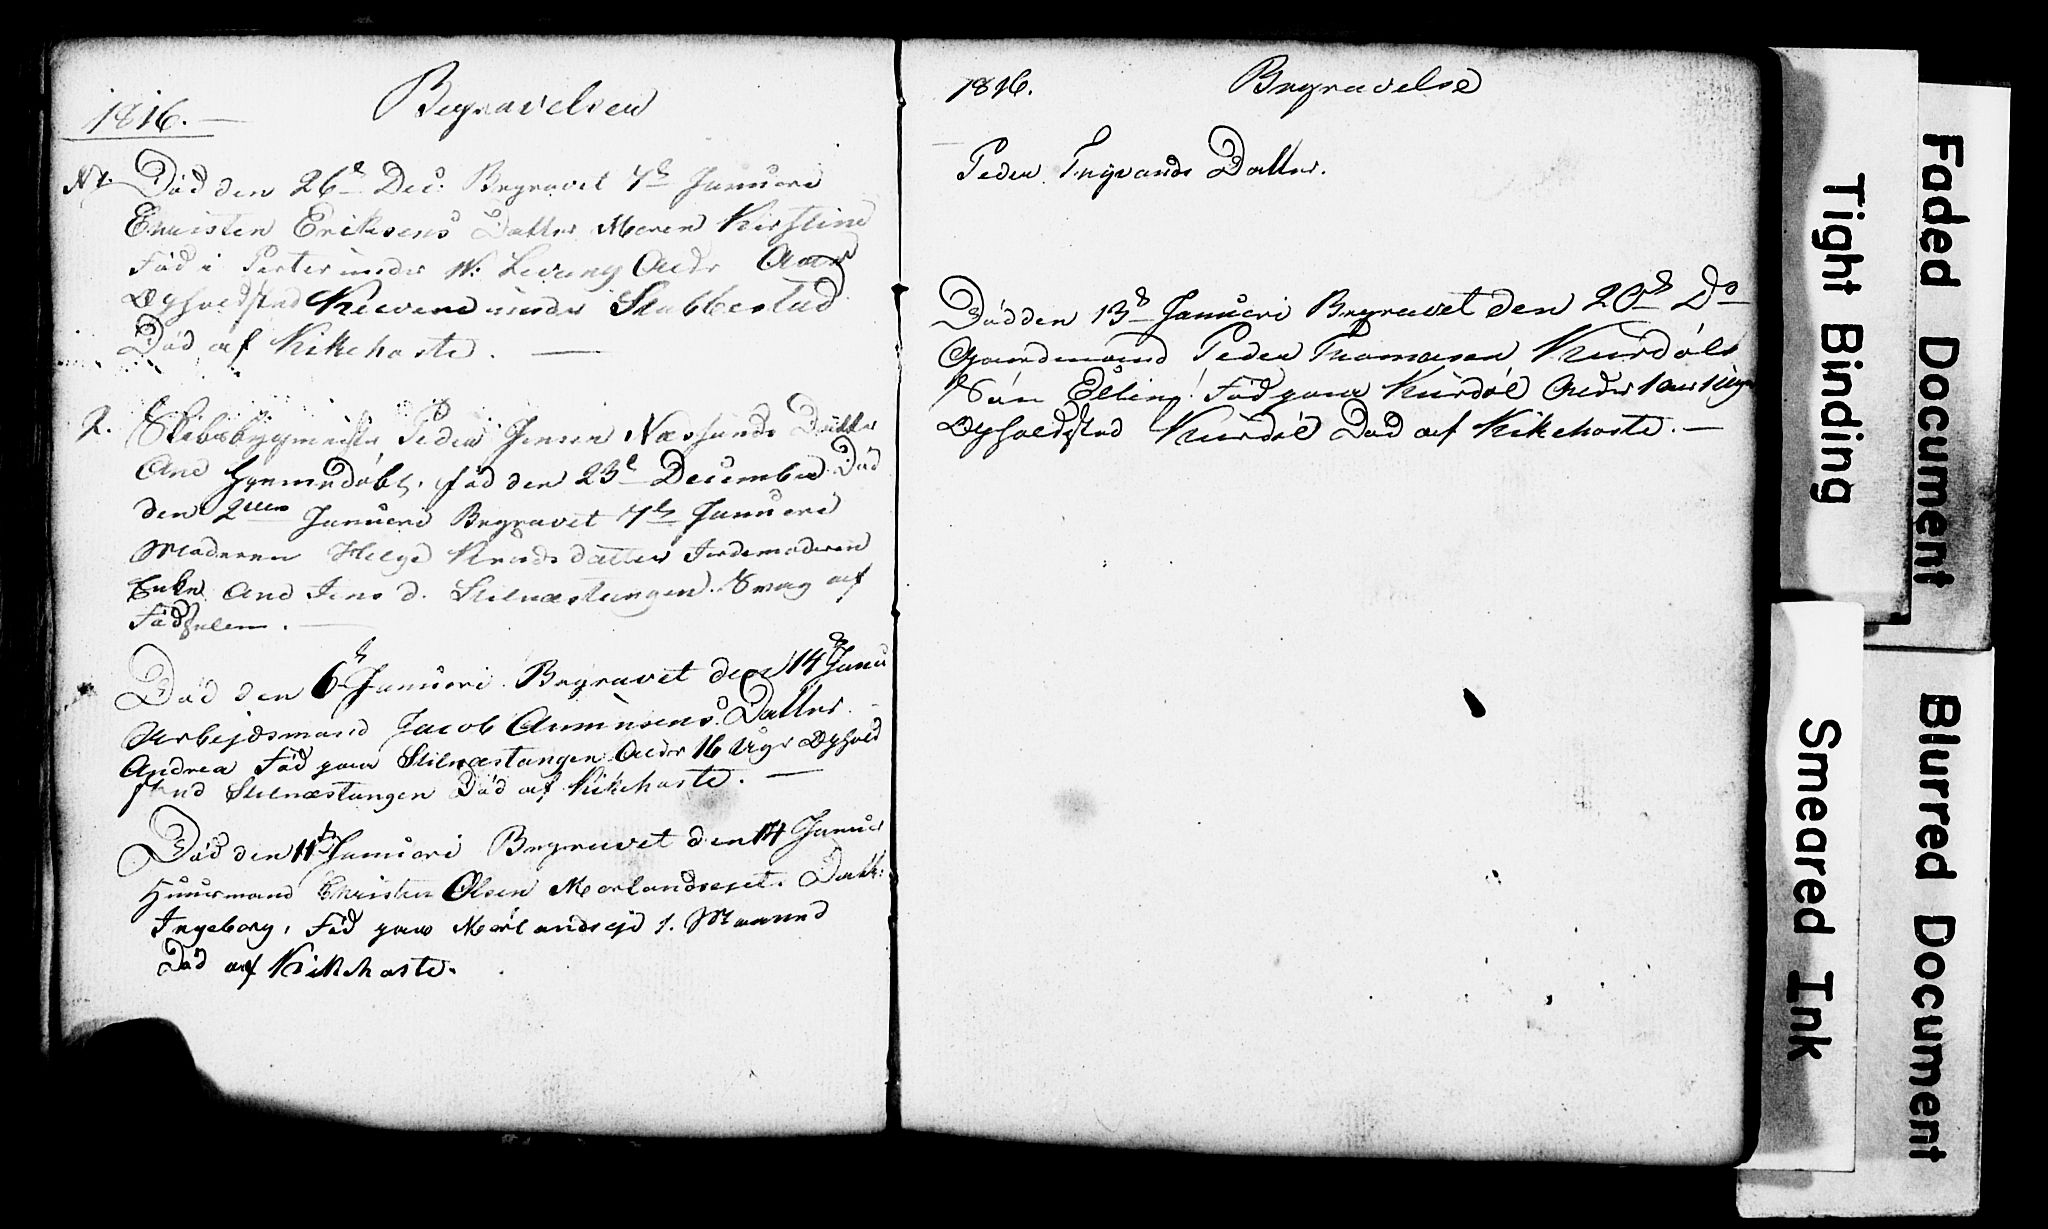 1816. Begravelser
N 1. Död den 26de Dec: Begravet 7de Januari
Christen Eriksens Datter Maren Kirstine
Föd i Porter under N. Levang Alder Aar
Opholdsted Kievene under Stabbestad
Död af Kikehoste.
2. Skibsbygmester Peder Jensen Næssunds Datter
Ane hjemmedöbt, föd den 23de December Död
den 2den Januari Begravet 7de Januari
Moderen Helge Knuds datter Jordemoderen
Enke Ane Jens d. Stilnæstangen. Svag af
Födselen.
Död den 6te Januari Begravet den 14de Janu
Arbejdsmand Jacob Amunsens Datter
Andrea Föd paa Stilnæstangen Alder 16 Uger Ophold
sted Stilnæstangen Död af Kikehoste.
Död den 11te Januari Begravet den 14 Januar
Huusmand Christen Olsen Mörlandsejet. Datt:
Ingeborg, Föd paa Mörlandsejd 1. Maaned
Död af Kikehoste.
1816. Begravelse
Peder Tngvands Datter.
Död den 13de Januari Begravet den 20de Do
Gaardmand Peder Thomasen Kurdöls
Sön Elling Föd paa Kurdöl Alder 1 aar 1 Uge
Opholdsted Kurdöl Död af Kikehoste.
Faded Document
Tight Binding
Blurred Document
Smeared Ink